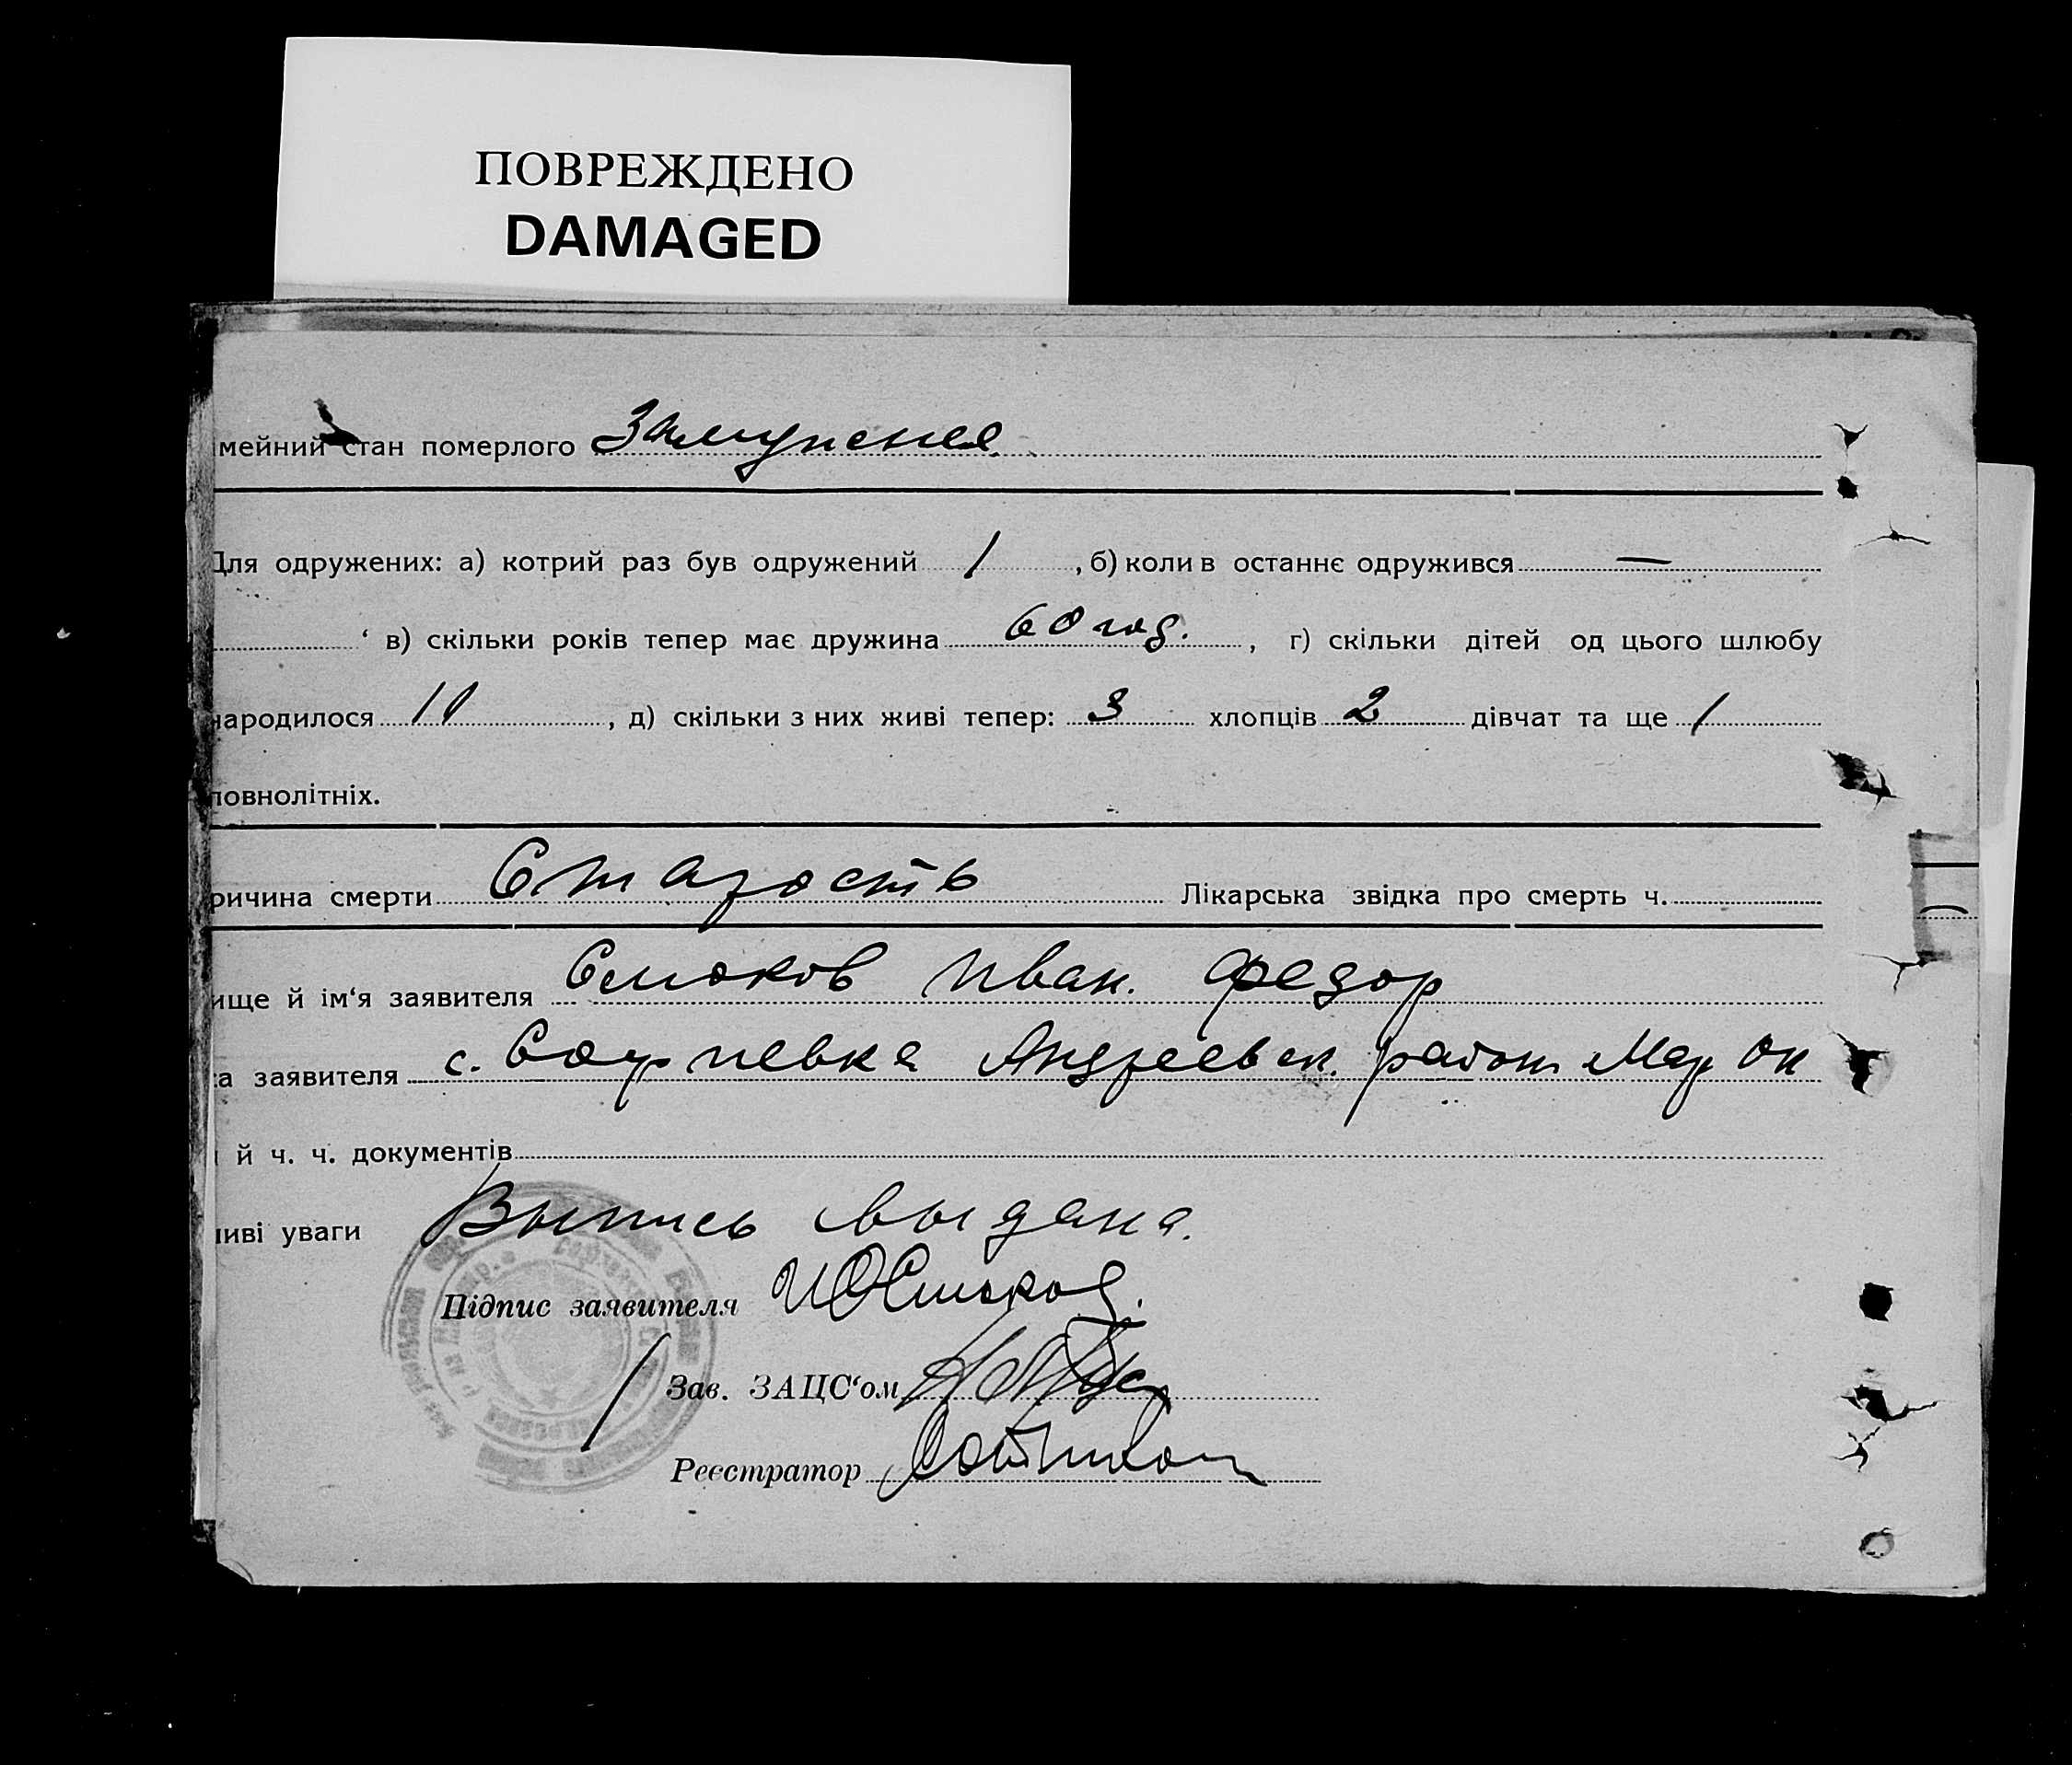 ПОВРЕЖДЕНО
DAMAGED
мейний стан померлого Замужняя
Для одружених: а) котрий раз був одружений 1, б) коли в останнє одружився —
в) скільки років тепер має дружина 60 год., г) скільки дітей од цього шлюбу
народилося 10, д) скільки з них живі тепер: 3 хлопців 2 дівчат та ще 1
повнолітніх.
ричина смерти Старость Лікарська звідка про смерть ч.
ище й ім‘я заявителя Иван. Федор
са заявителя с. Андреевск. район Мар Ок
й ч. ч. документів
иві уваги Выпись выдана.
Підпис заявителя
Зав. ЗАЦС‘ом
Реєстратор